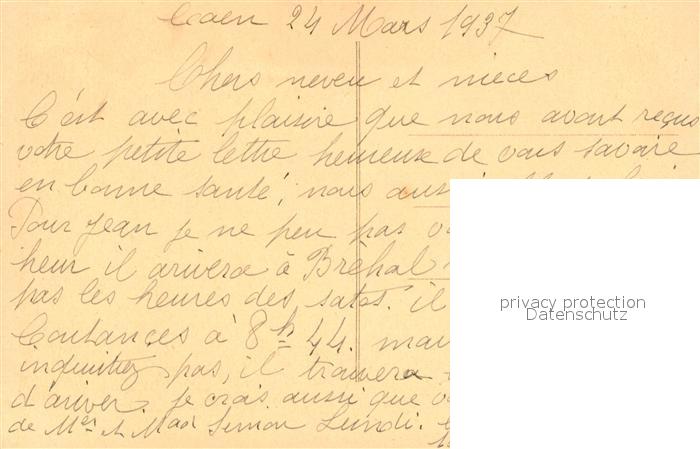 Caen 24 Mars 1937
Chers neveu et nieces
C'est avec plaisire que nous avont reçus
votre petite lettre heureuse de vous savoire
en bonne santé, nous aussi
Pour Jean je ne peu pas
heur il arivera à Bréhal
pas les heures des satos. il
Coutances à 8h 44. mais
inquiettez pas, il trouvera
d'ariver. je crois aussi que
de Mer et Mad Simon Lundi.
privacy protection
Datenschutz